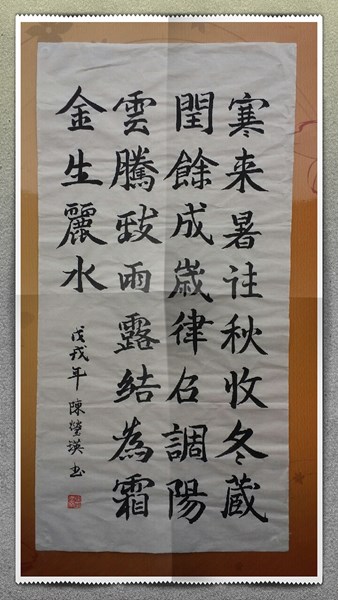 寒来暑往秋收冬藏
閏餘成歲律召調陽
雲騰致雨露結為霜
金生麗水
戊戌年 陳瑩瑛书